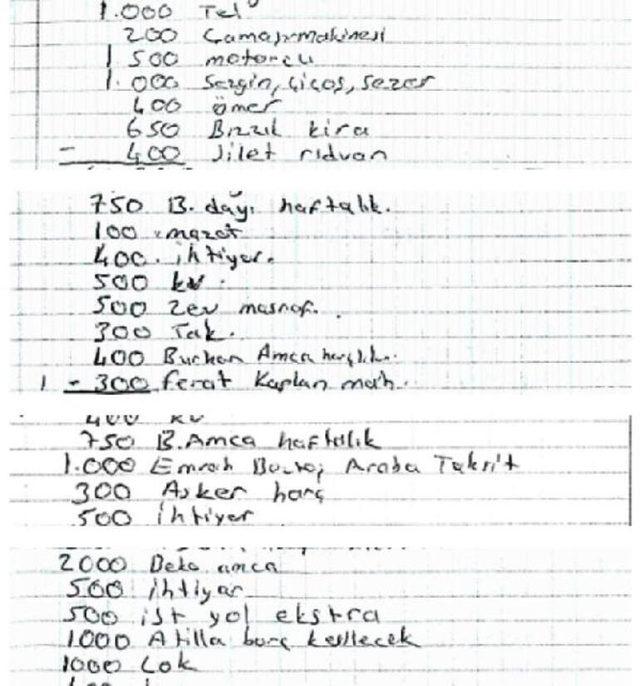 1.000 Tel
200 Çamaşır makinesi
1 500 motorcu
1.000 Sezgin, Çiços, Sezer
400 ömer
650 Bızzıl kira
- 400 Jilet rıdvan
750 B. dayı haftalık.
100 mazot
400. ihtiyar.
500 kv.
500 zev masraf.
300 Tak.
400 Burhan Amca harçlık..
1 - 300 ferat Kaplan mah.
400 kv
750 B. Amca haftalık
1.000 Emrah Araba Taksit
300 Asker harç
500 ihtiyar
2000 Beko amca
500 ihtiyar
500 ist yol ekstra
1000 Atilla borç kesilecek
1000 Çok